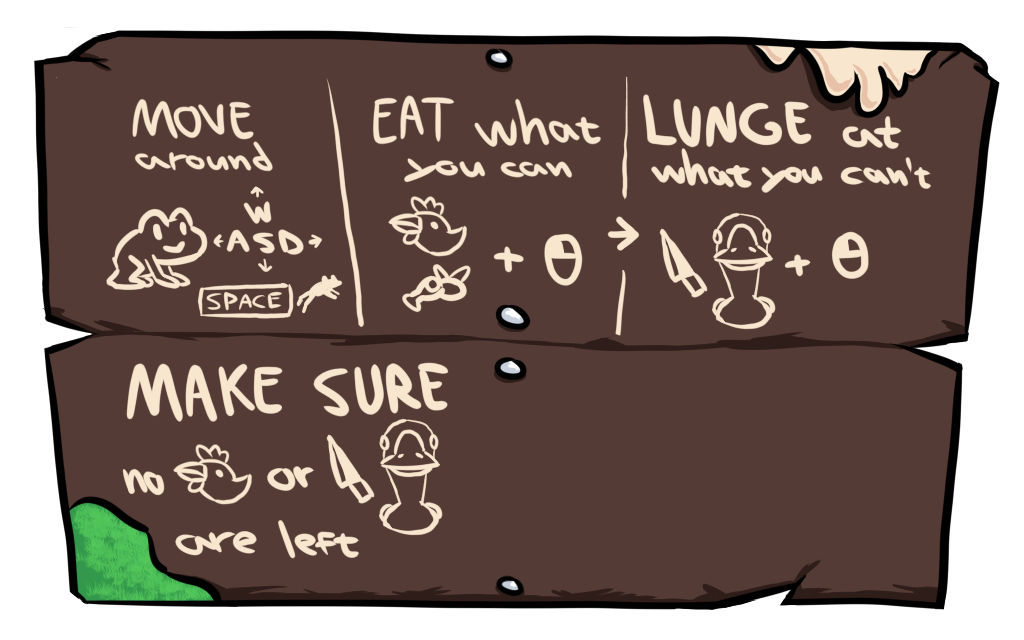 MOVE
around
W
ASD
SPACE
EAT what
you can
LUNGE at
what you can't
MAKE SURE
no or
are left